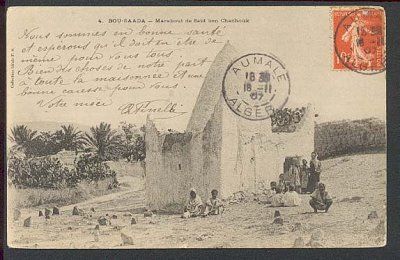 4. BOU-SAADA — Marabout de Saut ben Chachouk
Nous sommes en bonne santé
et esperons qu'il doit en être de
même pour vous tous
Bien des choses de notre part
à toute la maisonnée et une
bonne caresse pour vous.
Votre
AUMALE
18 30
18-11
07
ALGER